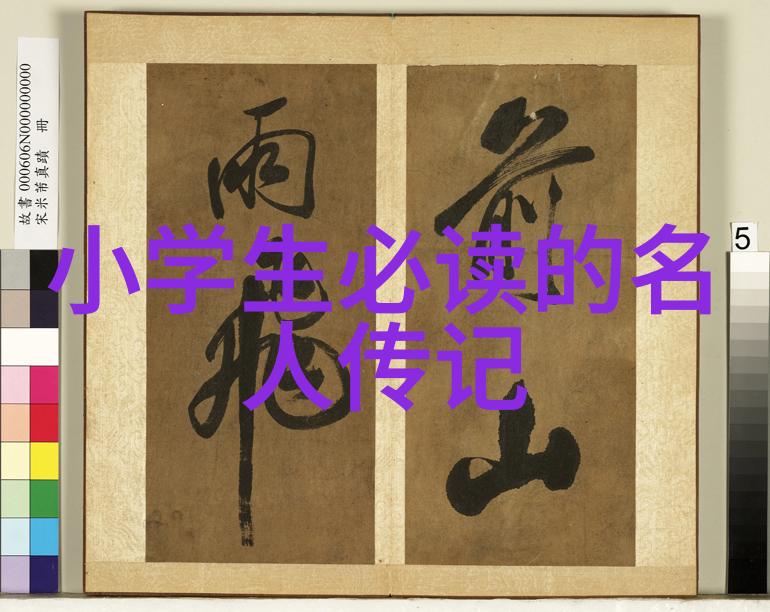 小学生必读的名
人传记
山
雨
故書 000606N000000000
宋米芾真蹟 冊
5